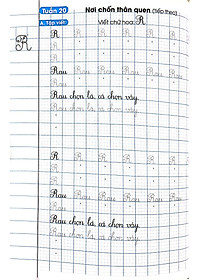 Tuần 20
Nơi chốn thân quen (tiếp theo)
A. Tập viết
Viết chữ hoa: R
R
R R R R R R
Rau Rau Rau Rau Rau Rau
Rau chọn lá, cá chọn vảy.
Rau chọn lá, cá chọn vảy.
R R R R R R
Rau Rau Rau Rau Rau Rau
Rau chọn lá, cá chọn vảy.
Rau chọn lá, cá chọn vảy.